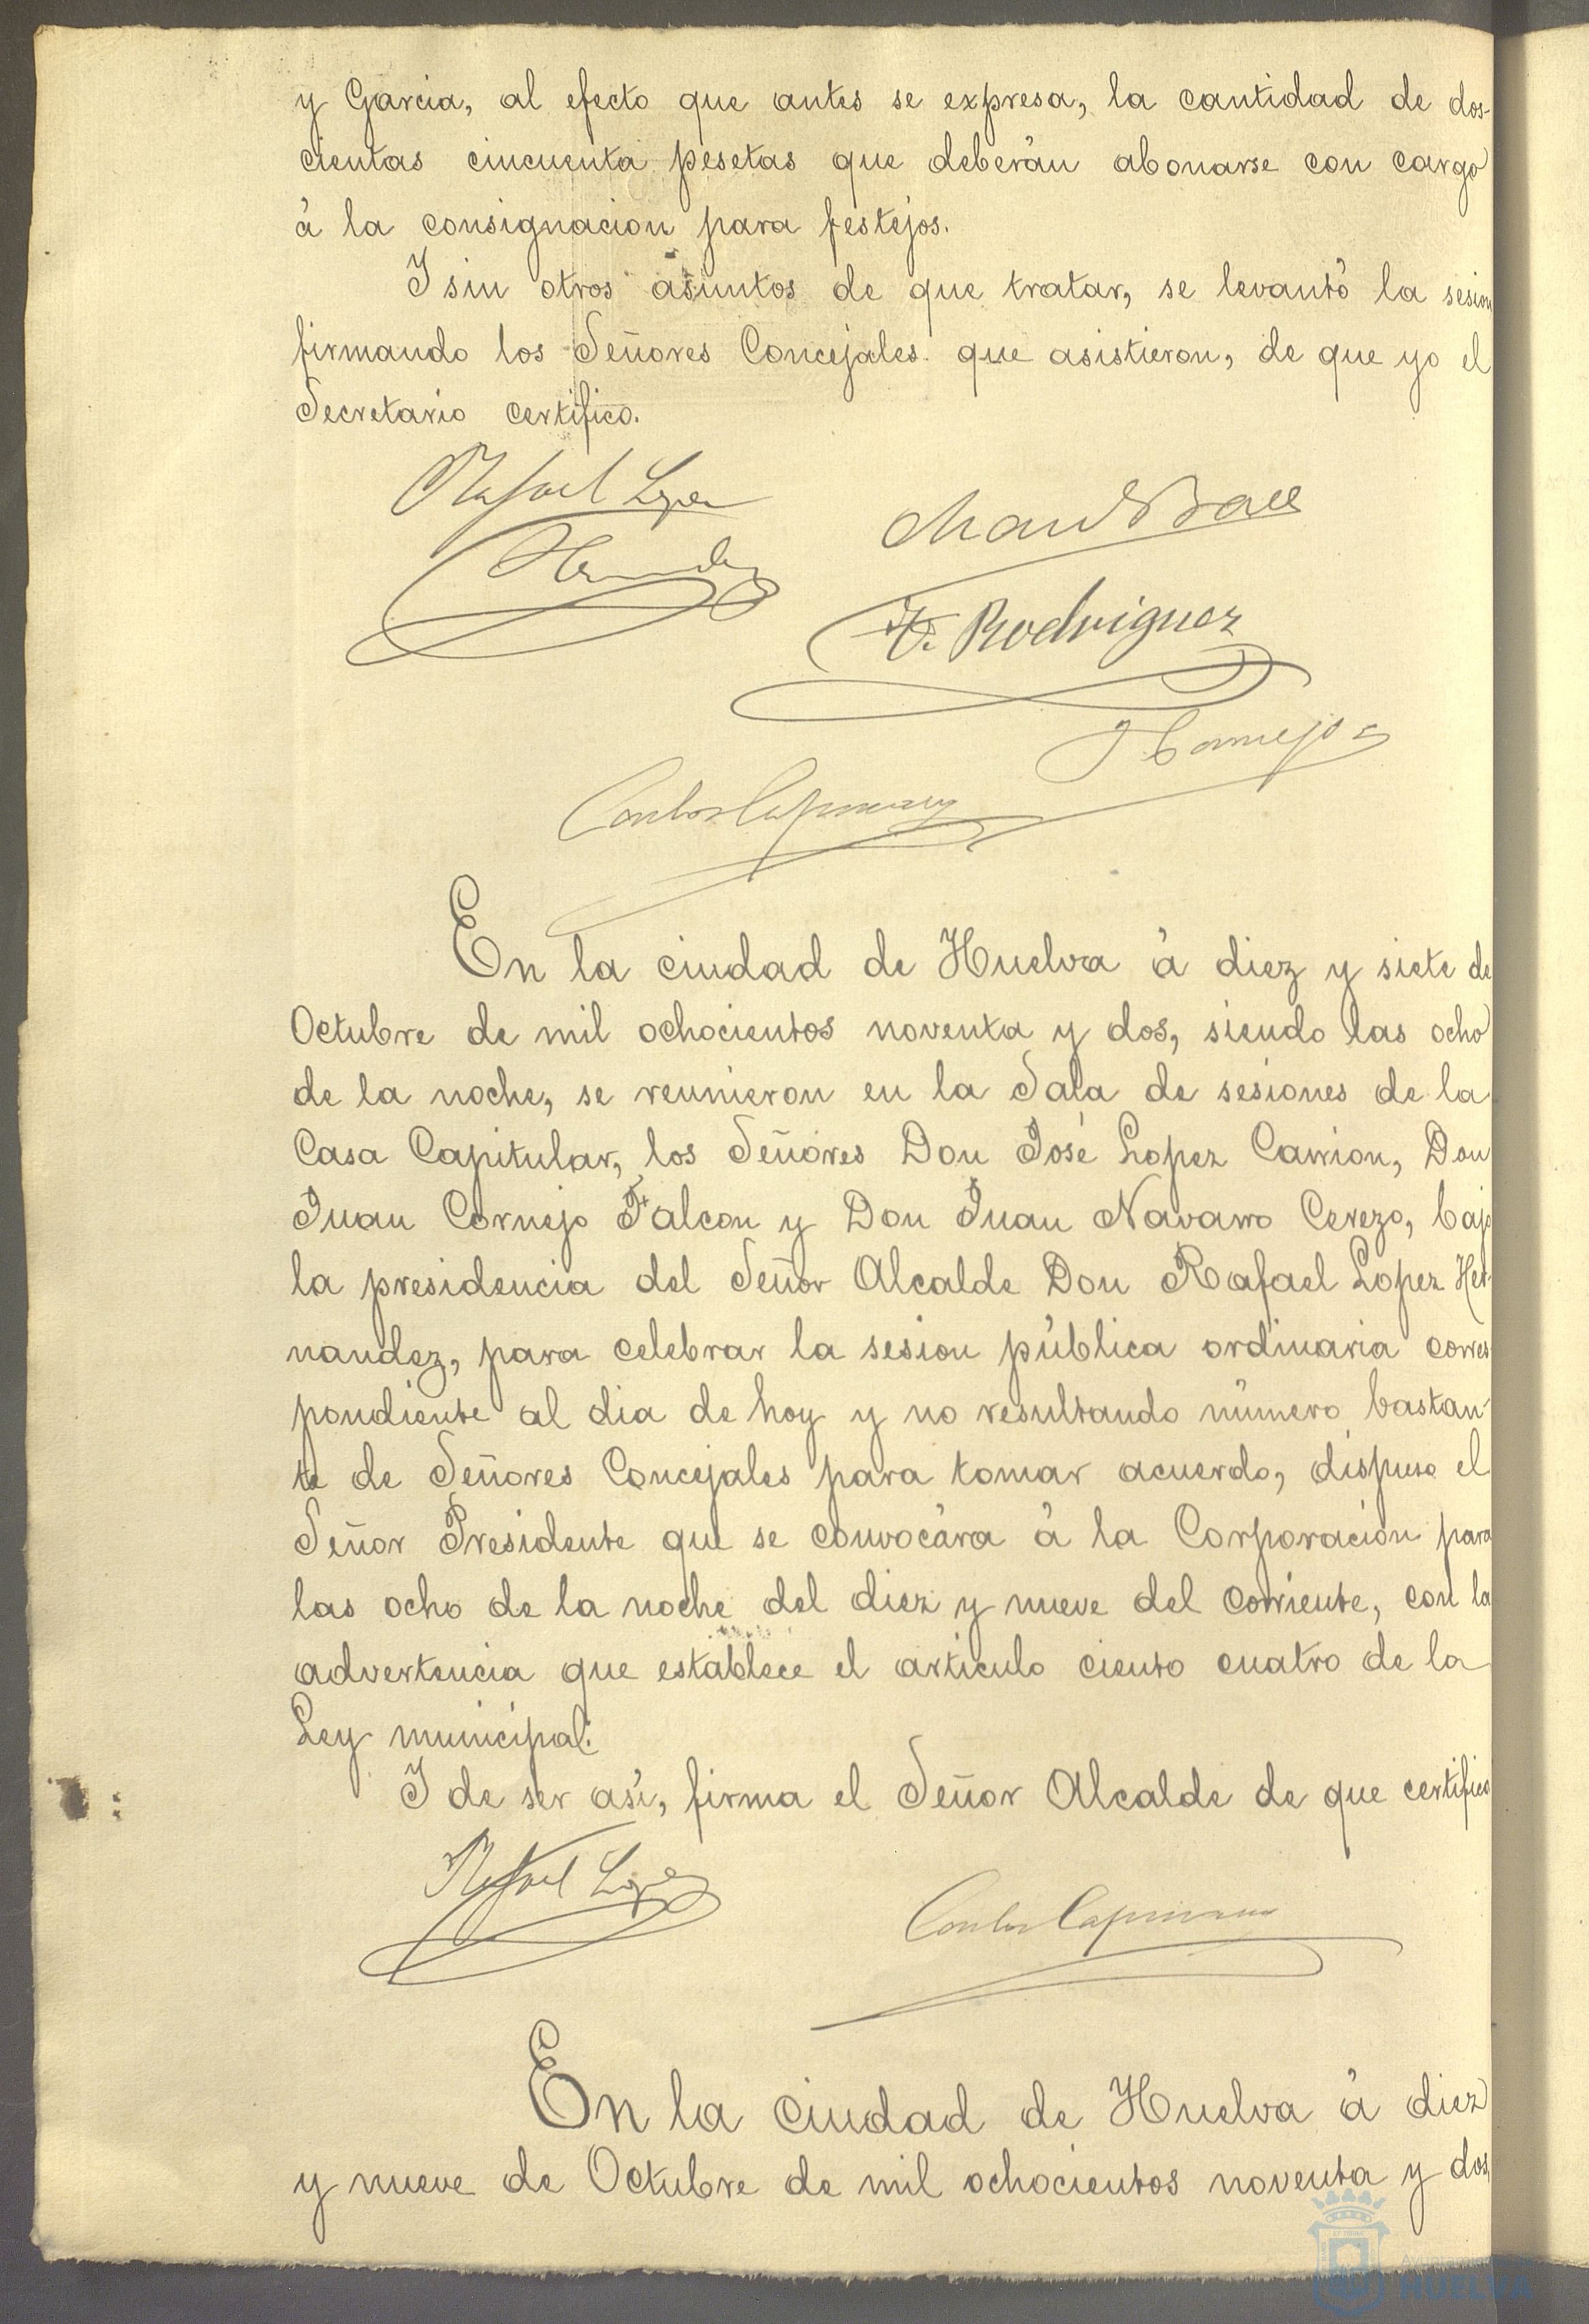 y Garcia, al efecto que antes se expresa, la cantidad de dos-
cientas cincuenta pesetas que deberán abonarse con cargo
á la consignacion para festejos.
Y sin otros asuntos de que tratar, se levantó la sesion
firmando los Señores Concejales que asistieron, de que yo el
Secretario certifico.
Rafael Lopez
Hernandez
F. Rodriguez
J Cornejo
En la ciudad de Huelva á diez y siete de
Octubre de mil ochocientos noventa y dos, siendo las ocho
de la noche, se reunieron en la Sala de sesiones de la
Casa Capitular, los Señores Don José Lopez Carrion, Don
Juan Cornejo Falcon y Don Juan Navarro Cerezo, bajo
la presidencia del Señor Alcalde Don Rafael Lopez Her-
nandez, para celebrar la sesion pública ordinaria corres
pondiente al dia de hoy y no resultando número bastan-
te de Señores Concejales para tomar acuerdo, dispuso el
Señor Presidente que se convocára á la Corporacion para
las ocho de la noche del diez y nueve del corriente, con la
advertencia que establece el articulo ciento cuatro de la
Ley municipal.
Y de ser así, firma el Señor Alcalde de que certifico
Rafael Lopez
En la ciudad de Huelva á diez
y nueve de Octubre de mil ochocientos noventa y dos,
HUELVA